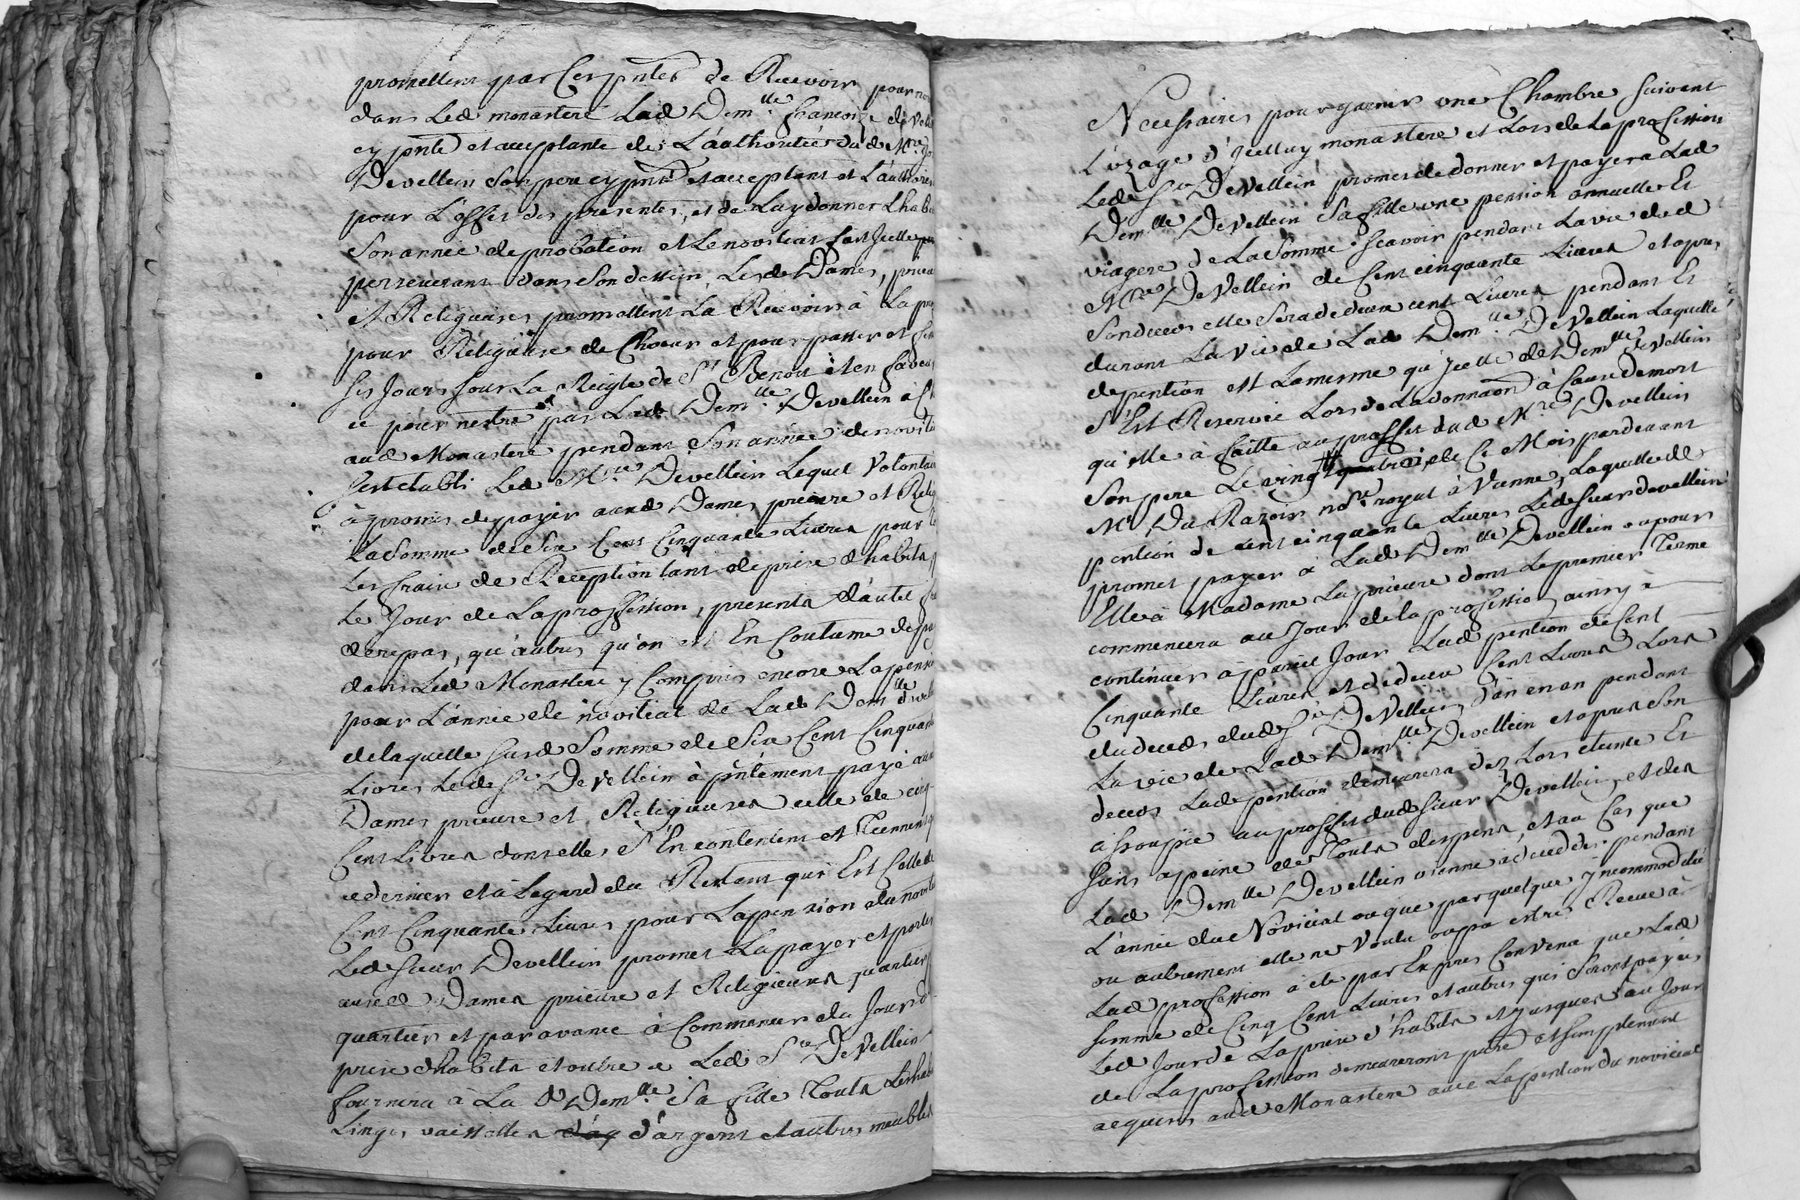 promettent par ces pntes de Recevoir pour no
dans led monastere Lad Demlle francoise de Vell
cy pnte et acceptante de L'authorité dud Mre
Devellein son pere cy pnt et acceptant et L'authoris
pour L'effet des presentes, et de Luy donner Lhabi
Son année de probation et Le novitiat fait Jcelle
perseverant dans Son dessein, Lesd Dames, prieu
et Religieuses promettent La Recevoir à La pro
pour Religieuse de Choeur et pour passer et fin
Ses Jours sous La Reigle de St Benoit et en faveur
ce pour nestre par Lad Demlle Devellein à ch
aud Monastere pendant Son année de novit
Sest etabli Led Mre Devellein Lequel Volontai
à promis de payer auxd Dames, prieure et Relig
La Somme de Six Cent Cinquante Livres pour
Les fraix de Reception tant de prise dhabits
Le Jour de La proffession, presents d'autel
de repas, qu'autres qu'on est En Coutume de
dans Led Monastere y Compris encore La pensi
pour L'année de novitiat de Lad Demlle devell
de laquelle susd Somme de Six Cent Cinquante
Livres Led Sr De Vellein à pntement payé aux
Dames prieure et Religieuses celle de cinq
Cent Livres dont elles S'En contentent et Tiennent
ce dernier et à Legard du Restant qui Est Celle de
Cent Cinquante Livres pour La pension du novit
Led Sieur Devellein promet La payer et porter
auxd Dames prieure et Religieuses quartier
quartier et par avance à Commencer du Jour d
prise dhabits et outre ce Led Sr De Vellein
fournira à La d Demlle Sa fille Touts Les hab
Linges vaisselles d'argent et autres meubles
Necessaires pour garnir une Chambre Suivant
L'uzage d'Jcelluy monastere et Lors de La profession
Led Sr Devellein promet de donner et payer a Lad
Demlle Devellein Sa fille une pension annuelle Et
viagere de La Somme Scavoir pendant La vie dud
Mre Devellein de Cent cinquante Livres et apres
Son deces elle Sera de deux cent Livres pendant Et
durant La vie de Lad Demlle Devellein Laquelle
de pention est La mesme qu'Jcelle de Demlle devellein
S'Est Reservée Lors de La donnaon à Cause de mort
qu'elle à faitte au proffit dud Mre Devellein
Son pere Le vingt de Ce Mois pardevant
Me Du Razoir nore royal à Vienne, Laquelle de
pention de cent cinquante Livres Led sieur devellein
promet payer à Lad Demlle Devellein ou pour
Elle à Madame La prieure dont Le premier Terme
commencera au Jour de la profession ainsy à
continuer à pareil Jour Lad pention de Cent
Cinquante Livres et de deux Cent Livres Lors
du deces dud Sr Devellein, d'an en an pendant
La vie de Lad Demlle Devellein et apres Son
deces Lad pention demeurera dez Lors eteinte Et
assoupie au proffit dud sieur Devellein, et des
siens a peine de Touts despens, et au Cas que
Lad Demlle Devellein vienne à deceder pendant
L'année du Noviciat ou que par quelque Jncommodité
ou autrement elle ne Voulu ou pu estre Receue à
Lad profession à eté par Expres Convenu que Lad
somme de Cinq Cent Livres et autres qui Seront payés
Led Jour de La prise d'habits et Jusques au Jour
de La profession demeureront purement et Simplement
acquises aud Monastere avec La pention du noviciat